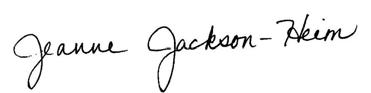 Jeanne Jackson-Heim